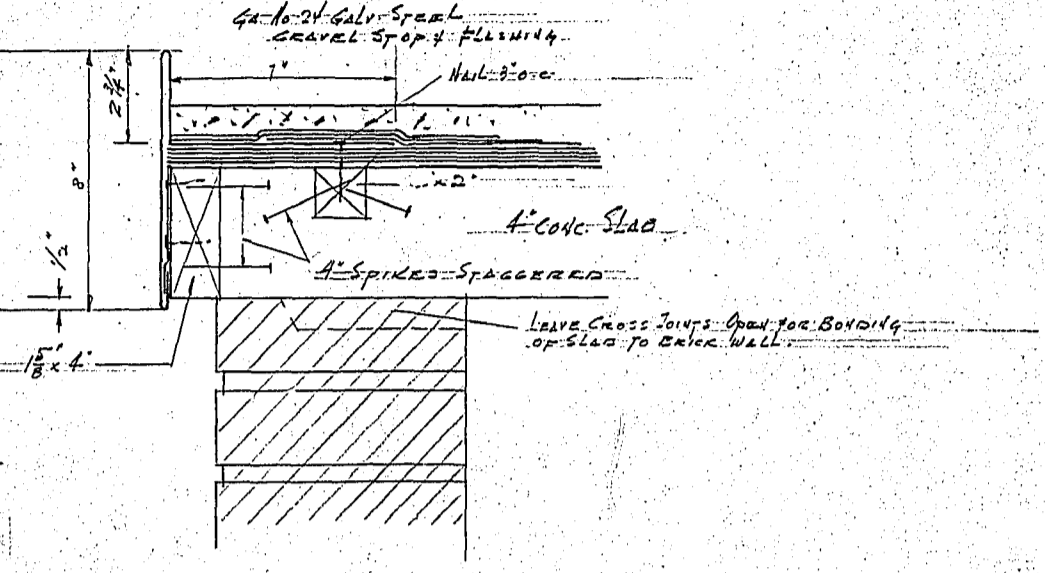 GA No 24 GALV. STEEL
GRAVEL STOP & FLASHING
7"
NAIL 3" O-C
2 3/4"
8"
x 2"
4" CONC. SLAB
1/2"
4" SPIKES STAGGERED
LEAVE CROSS JOINTS OPEN FOR BONDING
OF SLAB TO BRICK WALL.
1 5/8" x 4"